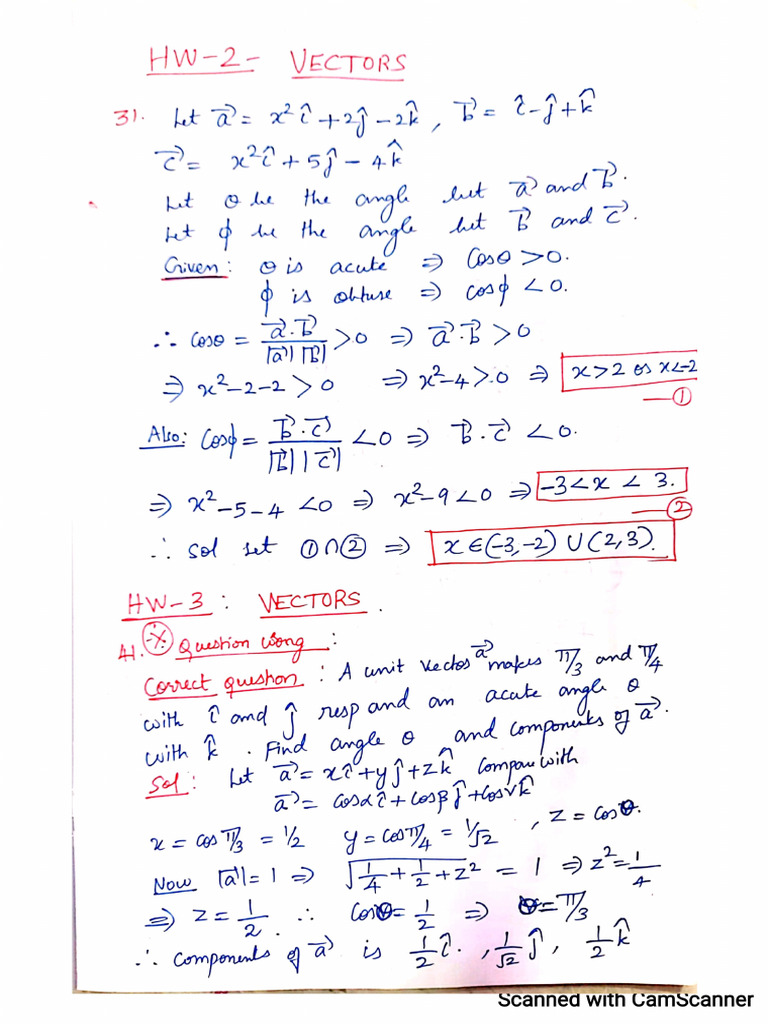 HW-2- VECTORS
31. Let a⃗ = x² î + 2ĵ - 2k̂, b⃗ = î - ĵ + k̂
c⃗ = x² î + 5ĵ - 4k̂
Let θ be the angle bet a⃗ and b⃗.
Let ϕ be the angle bet b⃗ and c⃗.
Given: θ is acute ⇒ Cosθ > 0.
ϕ is obtuse ⇒ cosϕ < 0.
∴ cosθ = a⃗.b⃗ / |a⃗| |b⃗| > 0 ⇒ a⃗.b⃗ > 0
⇒ x²-2-2 > 0 ⇒ x²-4 > 0 ⇒ x>2 or x<-2
—①
Also: Cosϕ = b⃗.c⃗ / |b⃗| |c⃗| < 0 ⇒ b⃗.c⃗ < 0.
⇒ x²-5-4 < 0 ⇒ x²-9 < 0 ⇒ -3 < x < 3.
—②
∴ sol set ①∩② ⇒ x∈(-3,-2) ∪ (2,3).
HW-3 : VECTORS.
41. * Question wrong :
Correct question : A unit vector a⃗ makes π/3 and π/4
with î and ĵ resp and an acute angle θ
with k̂. Find angle θ and components of a⃗.
Sol : Let a⃗ = xî + yĵ + zk̂ compare with
a⃗ = cosαî + cosβĵ + cosγk̂
x = cos π/3 = 1/2 y = cos π/4 = 1/√2, z = cosθ.
Now |a⃗| = 1 ⇒ √(1/4 + 1/2 + z²) = 1 ⇒ z² = 1/4
⇒ z = 1/2. ∴ cosθ = 1/2 ⇒ θ = π/3
∴ components of a⃗ is 1/2 î., 1/√2 ĵ, 1/2 k̂
Scanned with CamScanner